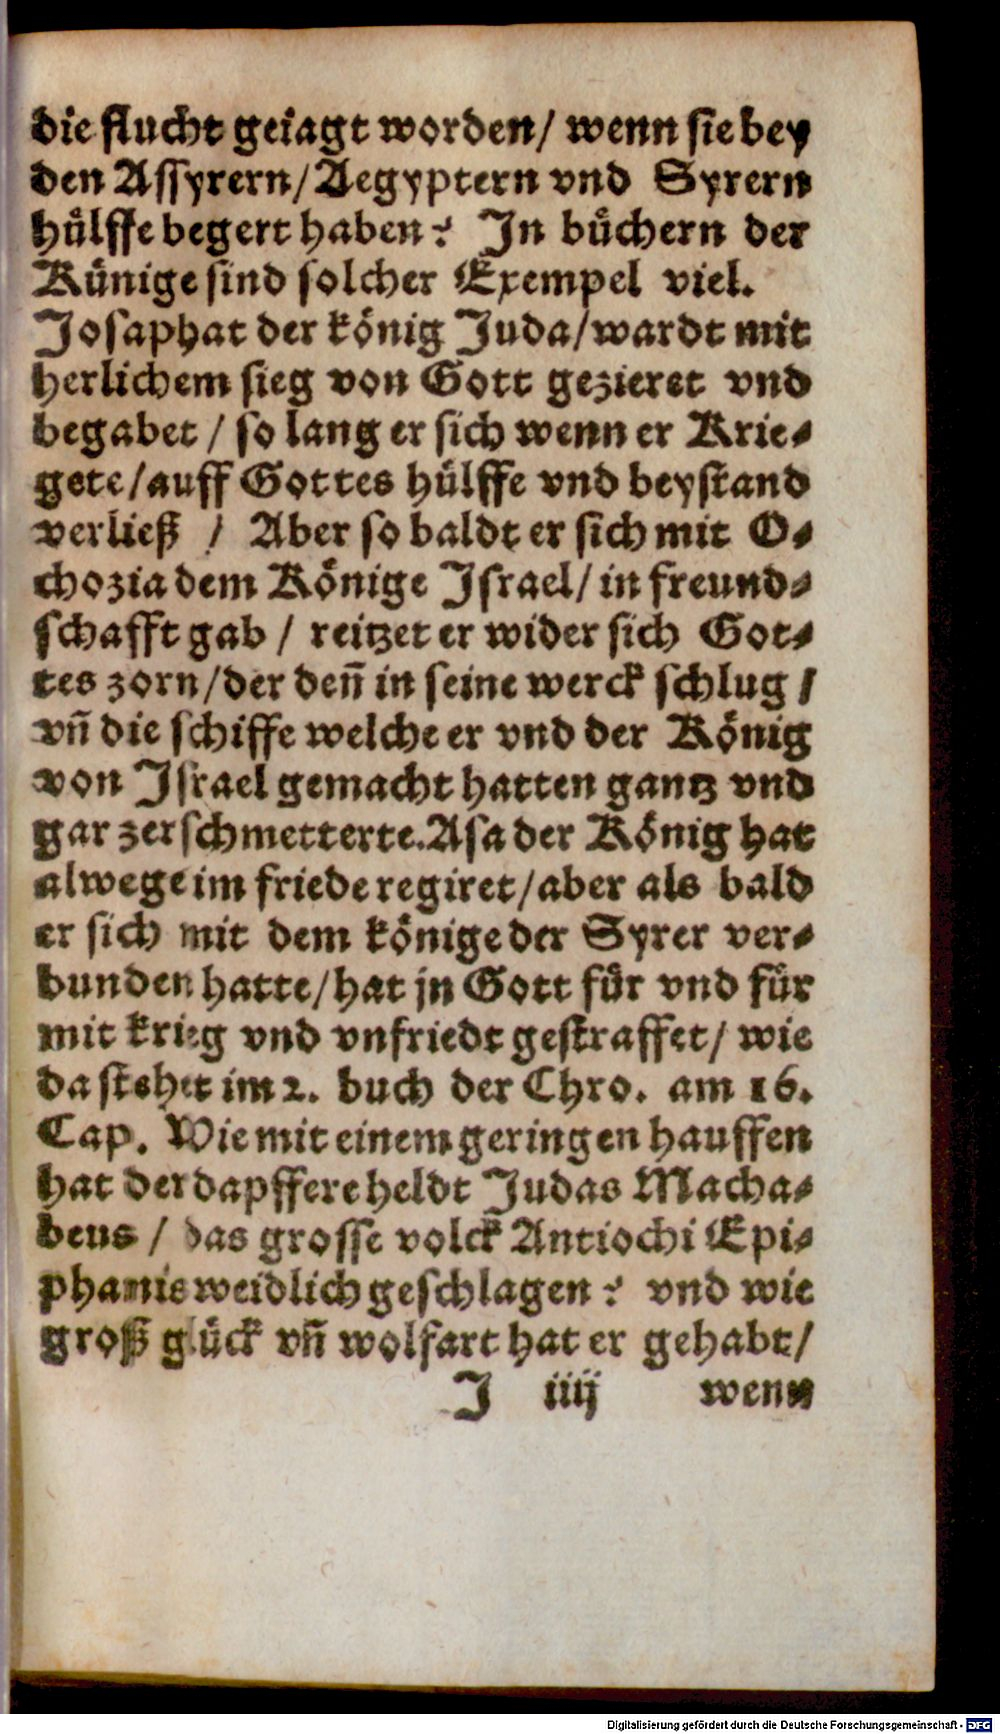 die flucht geiagt worden/ wenn sie bey
den Assyrern/ Aegyptern vnd Syrern
hülffe begert haben? In büchern der
Künige sind solcher Exempel viel.
Josaphat der könig Juda/ wardt mit
herlichem sieg von Gott gezieret vnd
begabet / so lang er sich wenn er Krie-
gete/ auff Gottes hülffe vnd beystand
verließ / Aber so baldt er sich mit O-
chozia dem Könige Israel/ in freund-
schafft gab / reitzet er wider sich Got-
tes zorn/ der deñ in seine werck schlug /
vñ die schiffe welche er vnd der König
von Israel gemacht hatten gantz vnd
gar zerschmetterte. Asa der König hat
alwege im friede regiret/ aber als bald
er sich mit dem könige der Syrer ver-
bunden hatte/ hat jn Gott für vnd für
mit krieg vnd vnfriedt gestraffet/ wie
da stehet im 2. buch der Chro. am 16.
Cap. Wie mit einem geringen hauffen
hat der dapffere heldt Judas Macha-
beus / das grosse volck Antiochi Epi-
phanis weidlich geschlagen? vnd wie
groß glück vñ wolfart hat er gehabt/
J iiij wenn
Digitalisierung gefördert durch die Deutsche Forschungsgemeinschaft - DFG